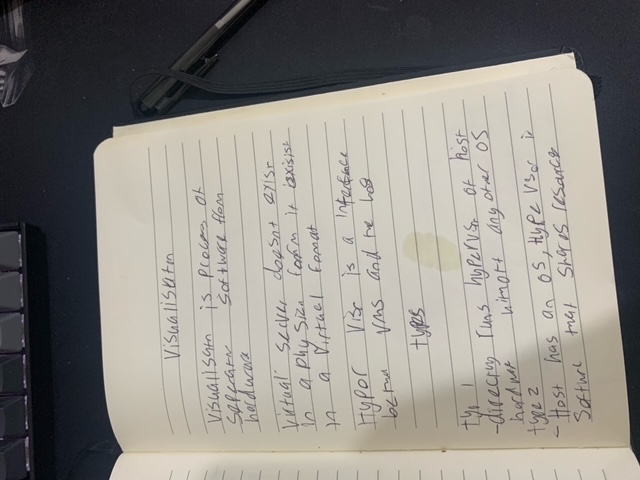 Visualisatn
Visualisatn is process of
seperatn software from
hardware
Virtual server doesnt exist
in a physizn form it exisist
in a Virtual fomat
Hypor Visr is a interface
betwn VMS and the hos
types
typ 1
-directly runs hypervsr of host
hardwar without any other OS
type 2
- Host has an OS, Hype Vsor is
Softwre that shares resources